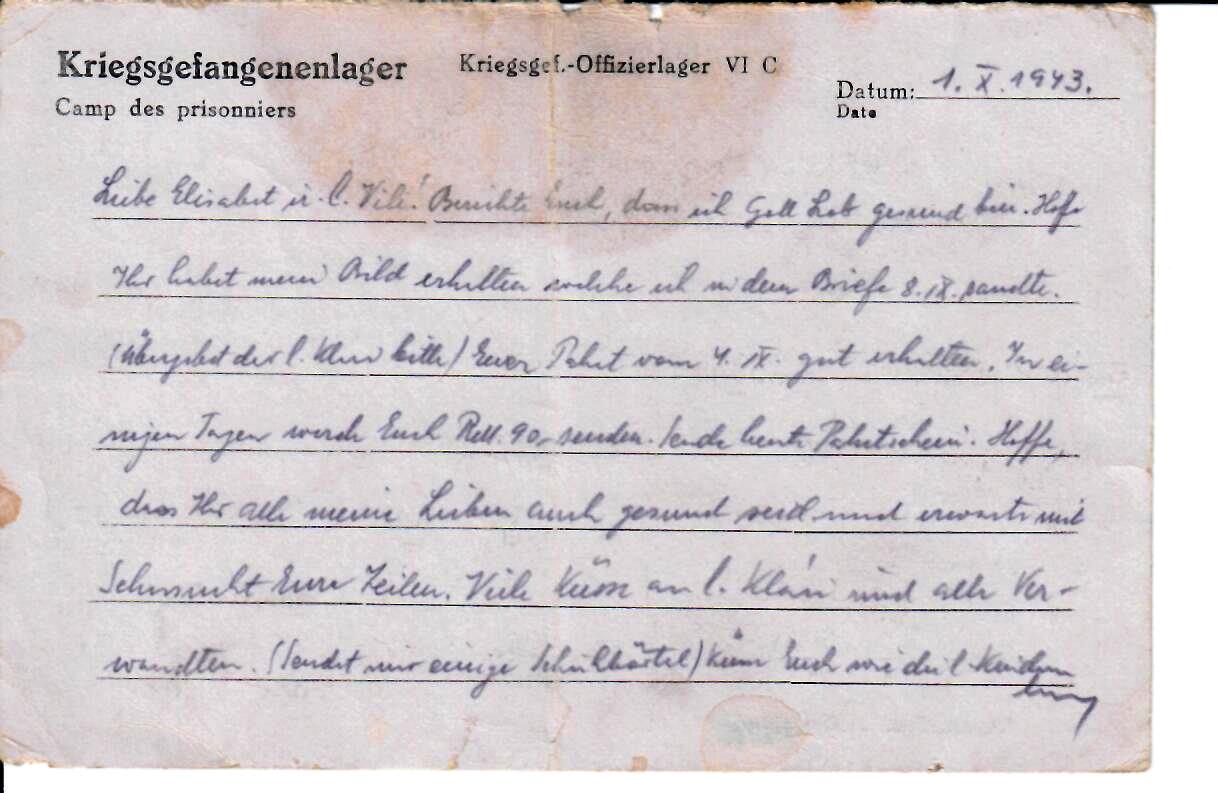 Kriegsgefangenenlager
Camp des prisonniers
Kriegsgef.-Offizierlager VI C
Datum: 1. X. 1943.
Date
Liebe Elisabet u. l. Vili! Berichte Euch, dass ich Gott Lob gesund bin. Hoffe
Ihr habet mein Bild erhalten welche ich in dem Briefe 8. IX. sandte.
(Übergebet der l. bitte) Euer Paket vom 4. IX. gut erhalten. In ei-
nigen Tagen werde Euch 90.- senden. Sende heute Paketschein. Hoffe,
dass Ihr alle meine Lieben auch gesund seid und erwarte mit
Sehnsucht Eure Zeilen. Viele Küsse an l. Klári und alle Ver-
wandten. (Sendet mir einige) Küsse Euch wie die l.